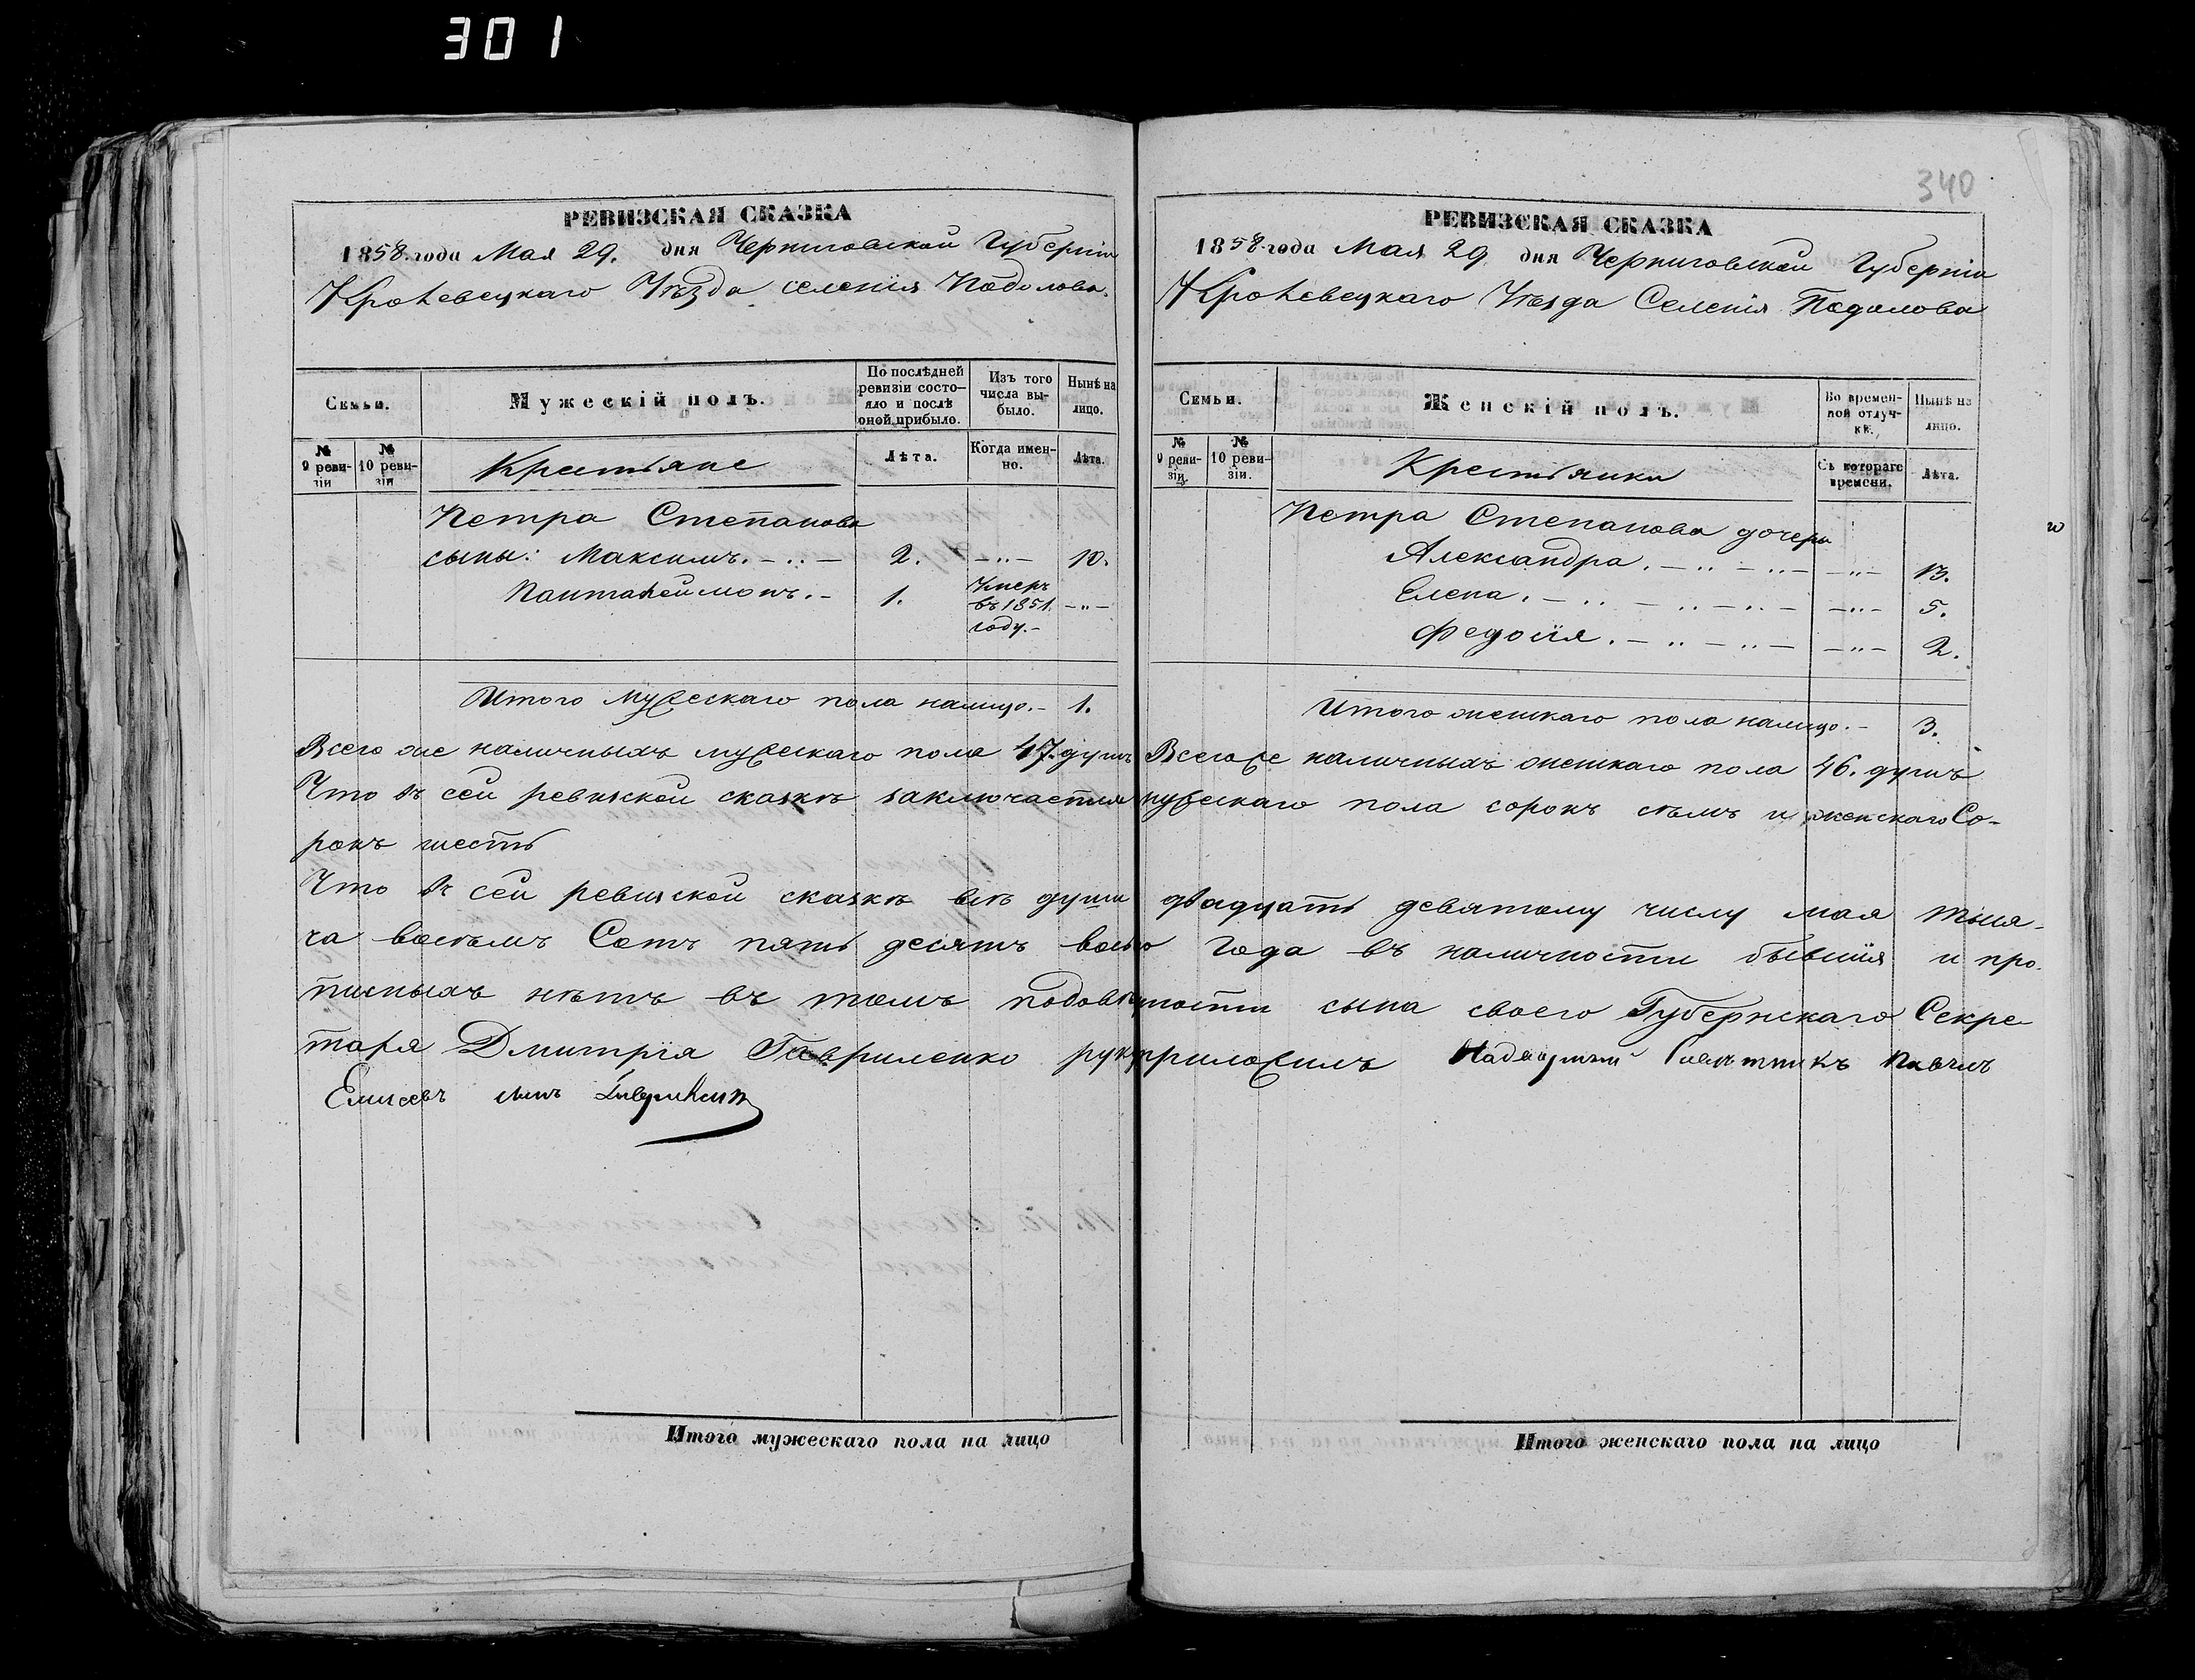 301
РЕВИЗСКАЯ СКАЗКА
1858. года Мая 29. дня Черниговской Губерніи
Кролевецкаго Уѣзда селенія Подолова.
Семьи.
Мужескій полъ.
По послѣдней ревизіи состояло и послѣ оной прибыло.
Изъ того числа выбыло.
Нынѣ на лицо.
№ 9 ревизіи
№ 10 ревизіи
Крестьяне
Лѣта.
Когда именно.
Лѣта.
Петра Степанова
сыны: Максимъ. 2. 10.
Пантелеймонъ. 1. Умеръ въ 1851. году.
Итого мужескаго пола налицо. 1.
Всего же наличныхъ мужескаго пола 47. душъ
340
РЕВИЗСКАЯ СКАЗКА
1858. года Мая 29 дня Черниговской Губерніи
Кролевецкаго Уѣзда Селенія Подолова
Семьи.
Женскій полъ.
Во временной отлучкѣ.
Нынѣ на лицо.
№ 9 ревизіи.
№ 10 ревизіи.
Крестьянки
Съ котораго времени.
Лѣта.
Петра Степанова дочери
Александра. 13.
Елена. 5.
Федосія. 2.
Итого женскаго пола налицо. 3.
Всего же наличныхъ женскаго пола 46. душъ
Что въ сей ревизской сказкѣ заключается мужескаго пола сорокъ семъ и женскаго Со-
рокъ шесть
Что въ сей ревизской сказкѣ всѣ души двадцать девятому числу мая тыся-
ча восемъ Сотъ пять десятъ года въ наличности бывшія и про-
писныхъ нѣтъ въ томъ сына своего Губернскаго Секре-
таря Дмитрія Гавриленко приложилъ Надворный Совѣтникъ Павелъ
Елисеевъ сынъ Гавриленко
Итого мужескаго пола на лицо
Итого женскаго пола на лицо